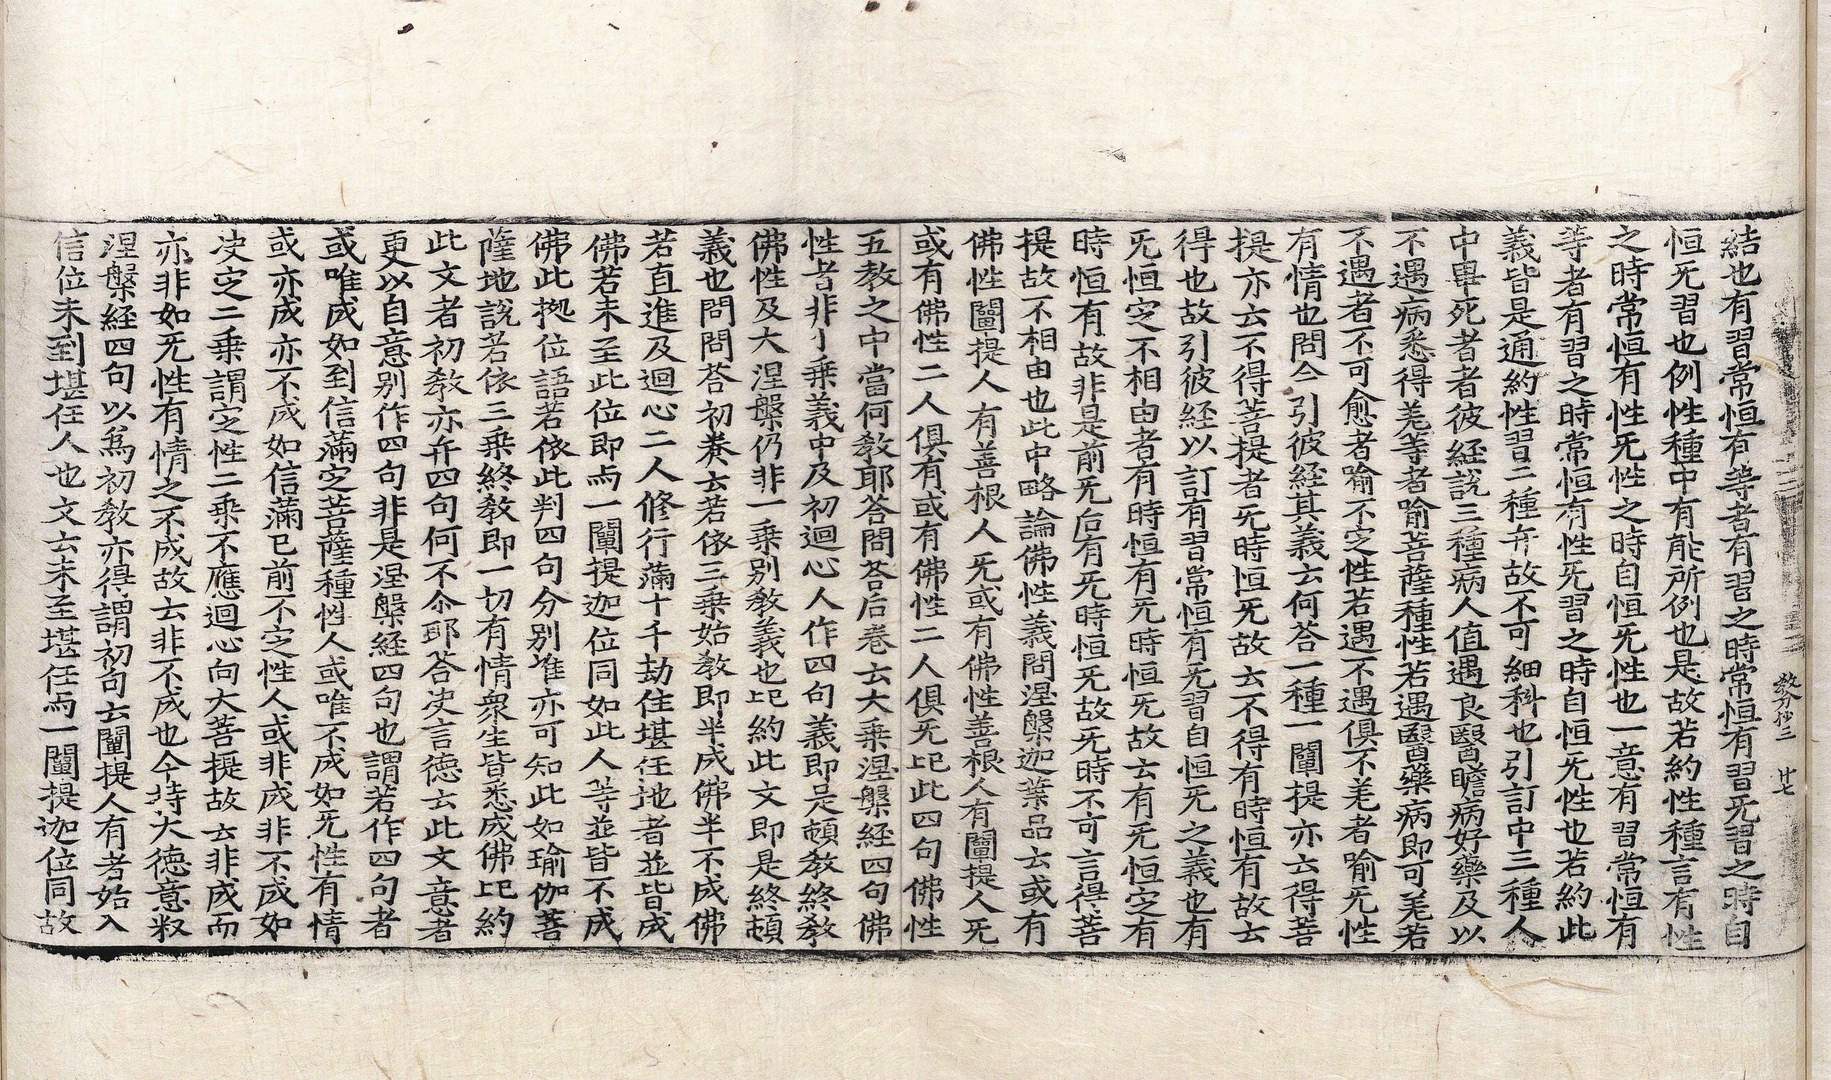 結也有習常恒有等者有習之時常恒有習旡習之時自
恒旡習也例性種中有能所例也是故若約性種言有性
之時常恒有性旡性之時自恒旡性也一意有習常恒有
等者有習之時常恒有性旡習之時自恒旡性也若約此
義皆是通約性習二種弁故不可細科也引訂中三種人
中畢死者者彼経說三種病人值遇良醫瞻病好藥及以
不遇病悉得羌等者喻菩薩種性若遇醫藥病即可羌若
不遇者不可愈者喻不㝎性若遇不遇俱不羌者喻旡性
有情也問今引彼経其義云何荅一種一闡提亦云得菩
提亦云不得菩提者旡時恒旡故云不得有時恒有故云
得也故引彼経以訂有習常恒有旡習自恒旡之義也有
旡恒㝎不相由者有時恒有旡時恒旡故云有旡恒㝎有
時恒有故非是前旡后有旡時恒旡故旡時不可言得菩
提故不相由也此中略論佛性義問涅槃迦葉品云或有
佛性闡提人有善根人旡或有佛性善根人有闡提人旡
或有佛性二人俱有或有佛性二人俱旡㠯此四句佛性
五教之中當何教耶荅問荅后卷云大乗涅槃経四句佛
性者非小乗義中及初迴心人作四句義即是頓教終教
佛性及大涅槃仍非一乗別教義也㠯約此文即是終頓
義也問問荅初卷云若依三乗始教即半成佛半不成佛
若直進及迴心二人修行滿十千劫住堪任地者並皆成
佛若未至此位即与一闡提迦位同如此人等並皆不成
佛此㨿位語若依此判四句分别准亦可知此如瑜伽菩
薩地說若依三乗終教即一切有情衆生皆悉成佛㠯約
此文者初教亦弁四句何不尒耶荅㳒言德云此文意者
更以自意别作四句非是涅槃経四句也謂若作四句者
或唯成如到信滿㝎菩薩種性人或唯不成如旡性有情
或亦成亦不成如信滿已前不㝎性人或非成非不成如
㳒㝎二乗謂㝎性二乗不應迴心向大菩提故云非成而
亦非如旡性有情之不成故云非不成也今持大德意㕘
涅槃経四句以爲初教亦得謂初句云闡提人有者始入
信位未到堪任人也文云未至堪任与一闡提迦位同故
教分抄三 廿七